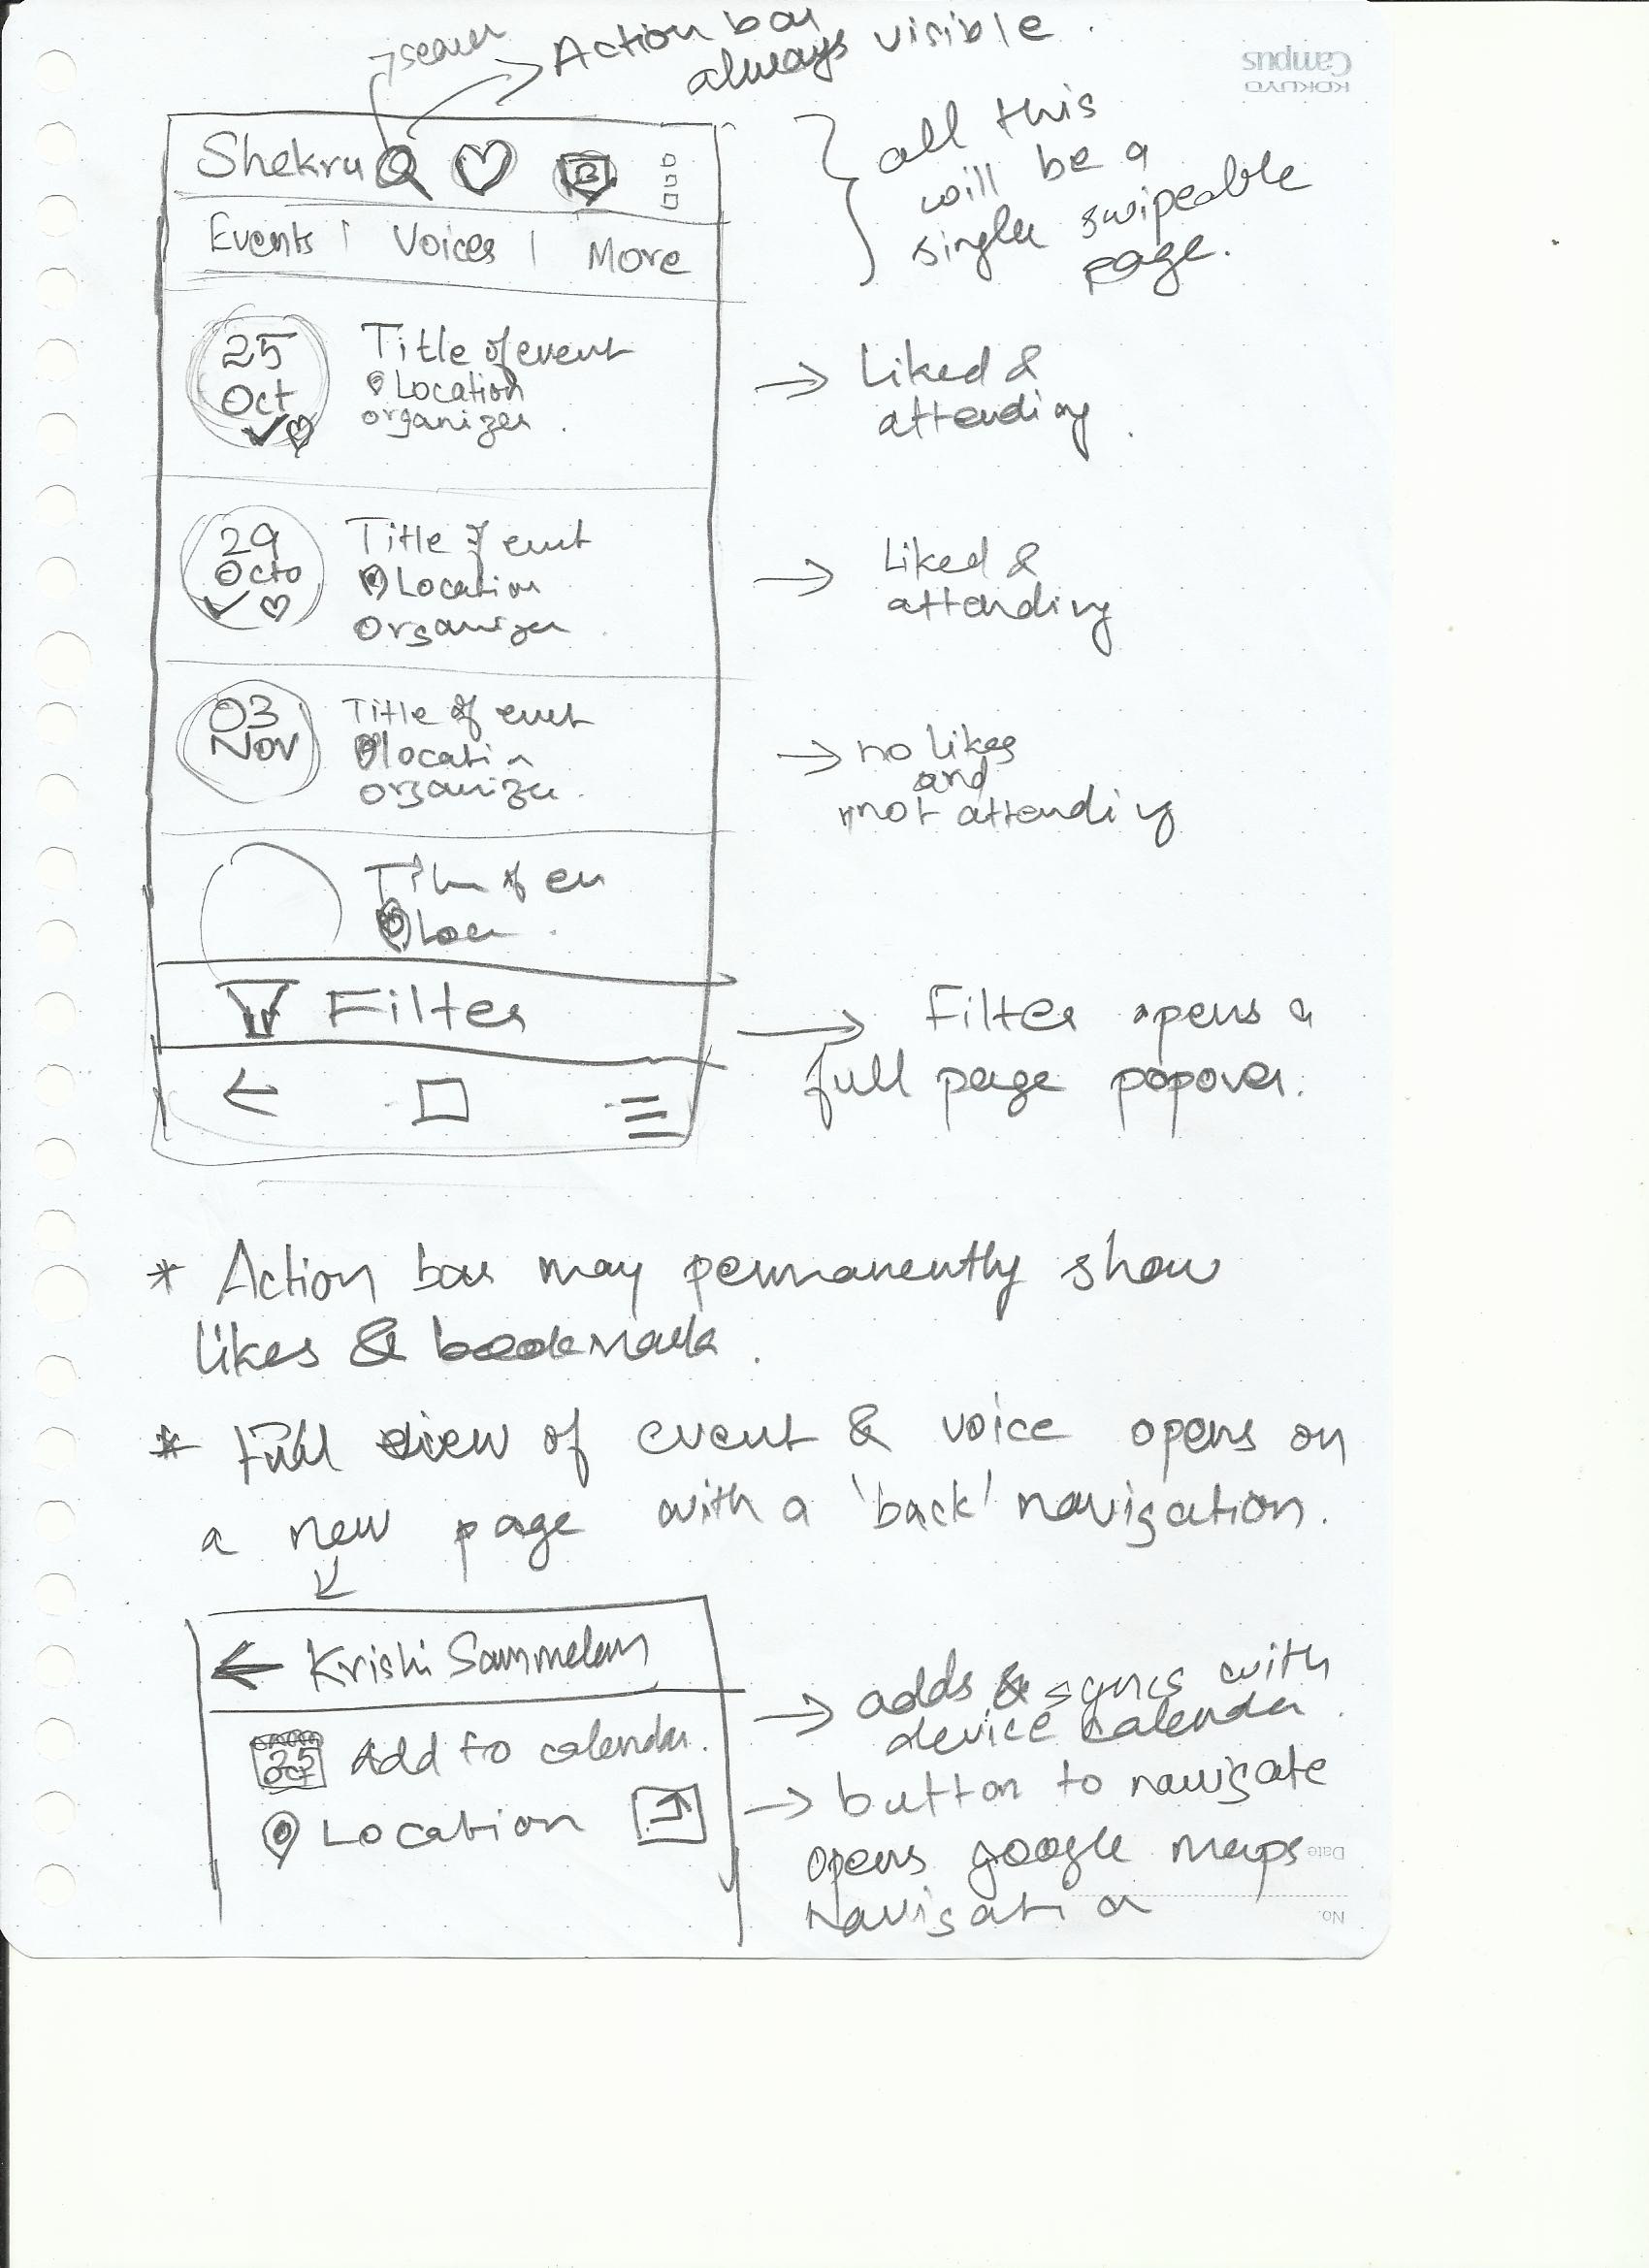 search
Action bar
always visible.
KOKUYO
Campus
Shekru
all this
will be a
single swipeable
page.
Events | Voices | More
25
Oct
Title of event
Location
organizer.
Liked &
attending.
29
Octo
Title of event
Location
Organizer.
Liked &
attending
03
Nov
Title of event
locatin
organizer.
no likes
and
not attending
Title of en
Loca.
Filter
Filter opens a
full page popover.
* Action bar may permanently show
likes & bookmark.
* Full view of event & voice opens on
a new page with a 'back' navigation.
← Krishi Sammelan
adds & syncs with
device calendar.
25
Oct
Add to calendar.
Location
button to navigate
opens google maps
navigation
Date
No.